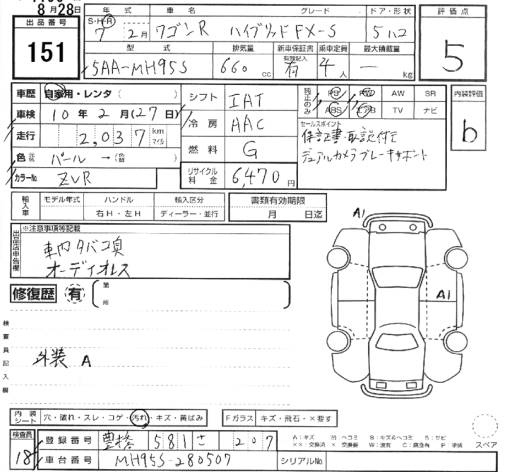 8月28日
出品番号
151
年式 車名 グレード ドア・形状
S・H・R 7年 2月 ワゴンR ハイブリッドFX-S 5ハコ
型式 排気量 新車保証書 乗車定員 最大積載量
5AA-MH95S 660cc 有効記入 有 4人 — kg
評価点
5
車歴 自家用・レンタ( )
車検 10年2月(27日)
走行 2,037 km マイル
色 パール→( )
カラーNo ZVR
シフト IAT
冷房 AAC
燃料 G
リサイクル料金 6,470円
純正のみ
AW SR
ABS TV ナビ
セールスポイント
保証書・取説付て
デュアルカメラブレーキサポート
内装評価
b
輸入車 モデル年式 ハンドル 輸入区分 書類有効期限
右H・左H ディーラー・並行 月 日迄
出品店申告欄
※注意事項等記載
車内タバコ臭
オーディオレス
修復歴 有 箇所
A1
A1
検査員記入欄
外装 A
内装シート 穴・破れ・スレ・コゲ・汚れ・キズ・黄ばみ Fガラス キズ・飛石・×要す
検査員
18
登録番号 豊橋 581 さ 207
車台番号 MH95S-280507 シリアルNo
スペア